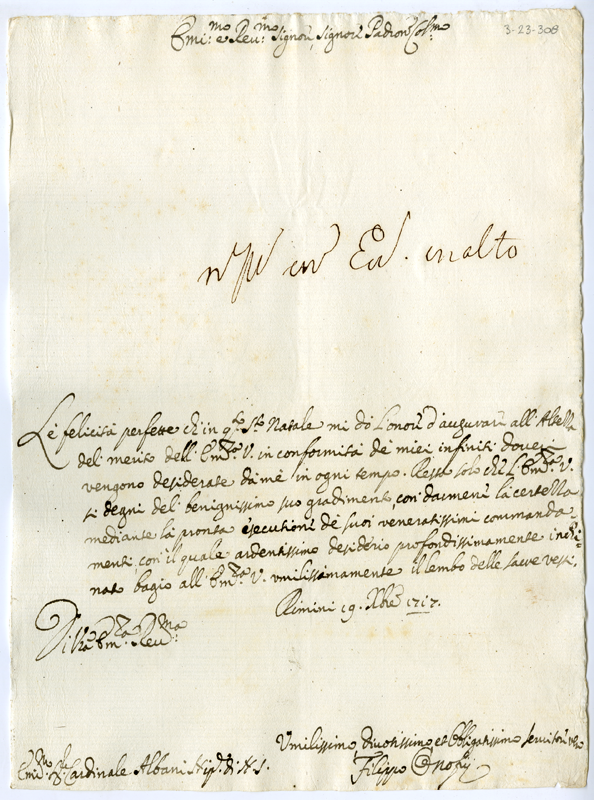 3-23-308
Emi:mo e Reu:mo Signor, Signor Padron Col:mo
in alto
Le felicità perfette che in q.to S.to Natale mi dò l'onore d'augurare all'Altezza
del merito dell'Em:za V. in conformità de miei infiniti doveri
vengono desiderate da mè in ogni tempo. Resta solo che l'Em:za V.
si degni del benignissimo suo gradimento, con darmene la certezza
mediante la pronta esecutione de suoi veneratissimi commanda-
menti, con il quale ardentissimo desiderio profondissimamente inchi-
nato bagio all'Em:za V. vmilissimamente il lembo delle sacre vesti.
Rimini 19. Xbre 1717.
Di Vra Em:za Reu:ma
Vmilissimo, Diuotissimo, et Obligatissimo seruitor vero
Emi:mo Sr. Cardinale Albani Nip.te di N. S.
Filippo Onofrij